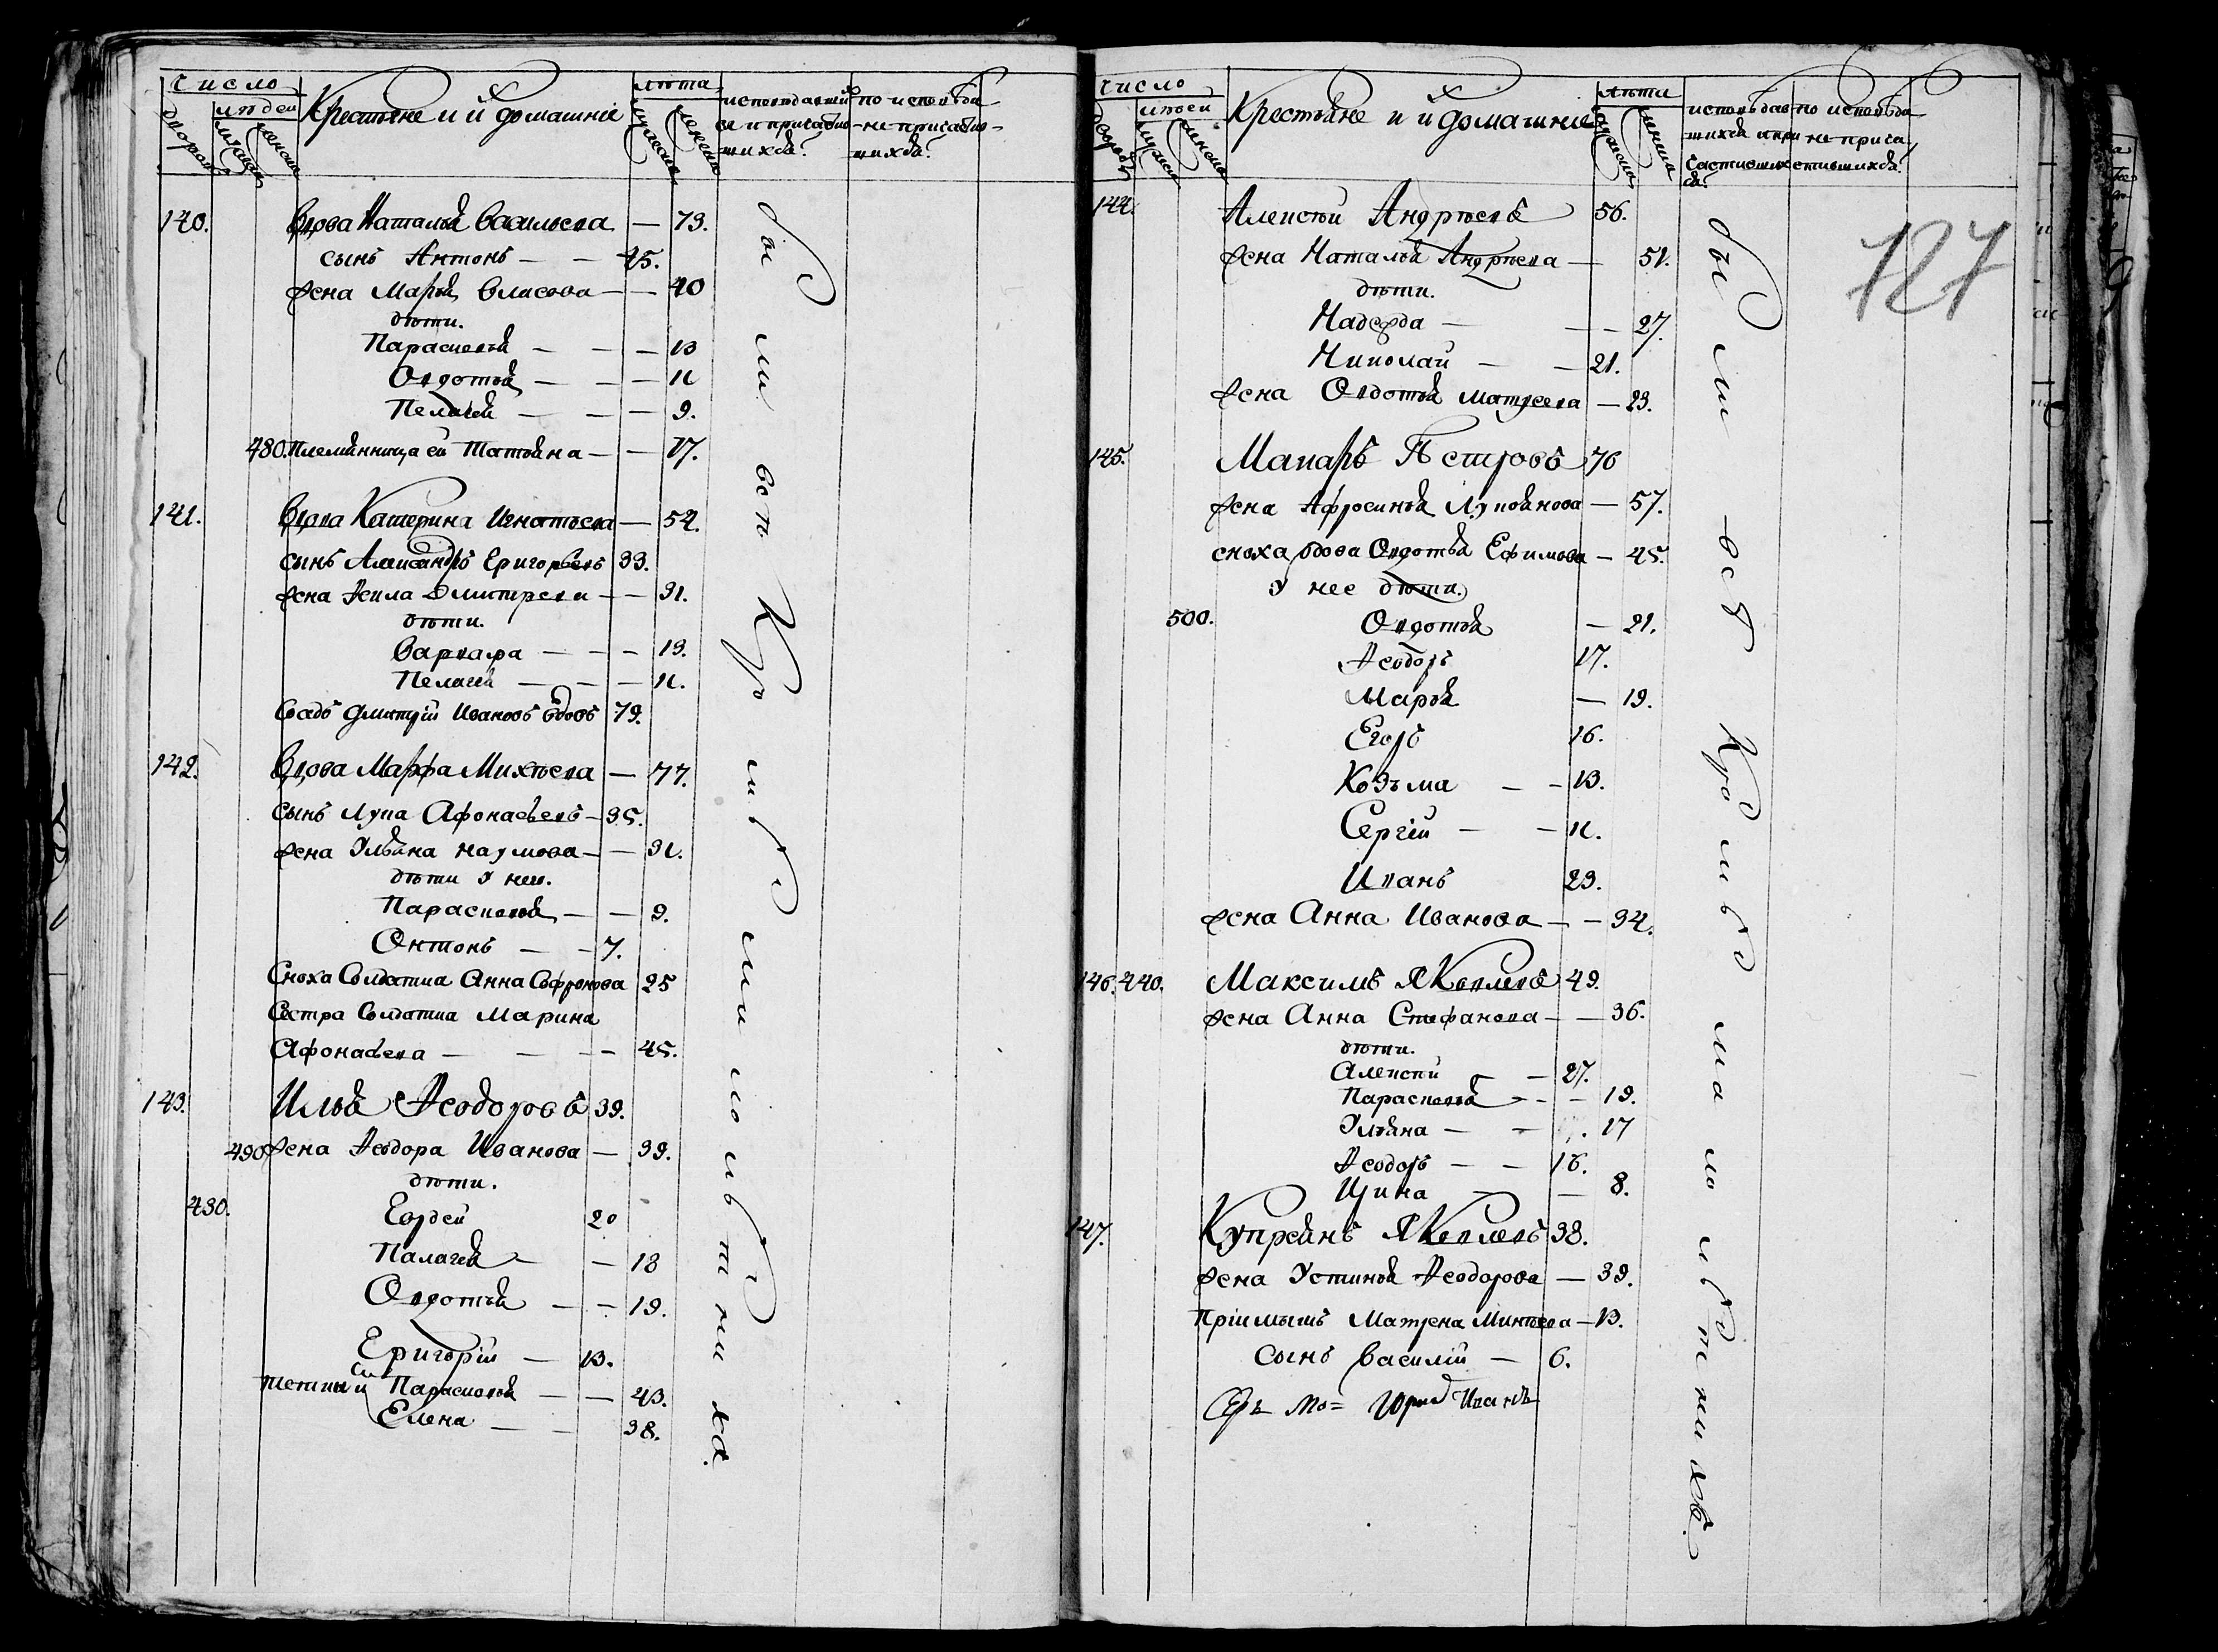 число
людей
дворовъ
мужска
женска
Крестьяне и ихъ домашніе
лѣта
мужска
женска
исповѣдавшіи
ся и причастив
шихся.
по исповѣда
не причастив
шихся.
140. Вдова Наталья Васильева — 73.
сынъ Антонъ — — 45.
жена Марья Власова — — 40
дѣти.
Параскевья — — — 13
Овдотья — — — 11
Пелагея — — — 9.
480. Племянница ея Татьяна — — 17.
141. Вдова Катерина Игнатьева — 54.
сынъ Александръ Григорьевъ 33.
жена Акилина Дмитрева — — 31.
дѣти.
Варвара — — — 13.
Пелагея — — — 11.
Сватъ Дмитрій Ивановъ вдовъ 79.
142. Вдова Марфа Михѣева — 77.
Сынъ Лупа Афонасьевъ — 35.
жена Ульяна Наумова — — 31.
дѣти у нея.
Параскевья — — 9.
Онтонъ — — 7.
Сноха Солдатка Анна Софронова 25
Сестра Солдатка Марина
Афонасьева — — — 45.
143. Илья Ѳеодоровъ 39.
490 жена Ѳеодора Иванова — 39.
дѣти.
430. Гордей 20
Палагея — — 18
Овдотья — — 19.
Григорій — 13.
Тетки ихъ Параскевья — — 43.
Елена — — 38.
были всѣ Кромѣ малолѣтнихъ.
число
людей
дворовъ
мужска
женска
Крестьяне и ихъ домашніе
лѣта
мужска
женска
исповѣдав
шихся и при
частивших
ся.
по исповѣда
не прича
стившихся.
127
144. Алексѣй Андрѣевъ 56.
жена Наталья Андрѣева — 51.
дѣти.
Надежда — — — 27.
Николай — — 21.
жена Овдотья Матвеева — 23.
145. Макаръ Петровъ 70
жена Афросинья Лукоянова — 57.
сноха вдова Овдотья Ефимова — 45.
У нее дѣти.
500. Овдотья — 21.
Ѳеодоръ 17.
Марья — 19.
Егоръ 16.
Козьма — — 13.
Сергій — — 11.
Иванъ 23.
жена Анна Иванова — — 34.
146. 440. Максимъ Яковлевъ 49.
жена Анна Стефанова — — 36.
дѣти.
Алексѣй — — 27.
Параскевья — — — 19.
Ульяна — — 17
Ѳеодоръ — — 16.
Ирина — — 8.
147. Купреянъ Яковлевъ 38.
жена Устинья Ѳеодорова — 39.
Пріимышъ Матрена Микѣева — 13.
Сынъ Василій — 6.
Иванъ
были всѣ Кромѣ малолѣтнихъ.